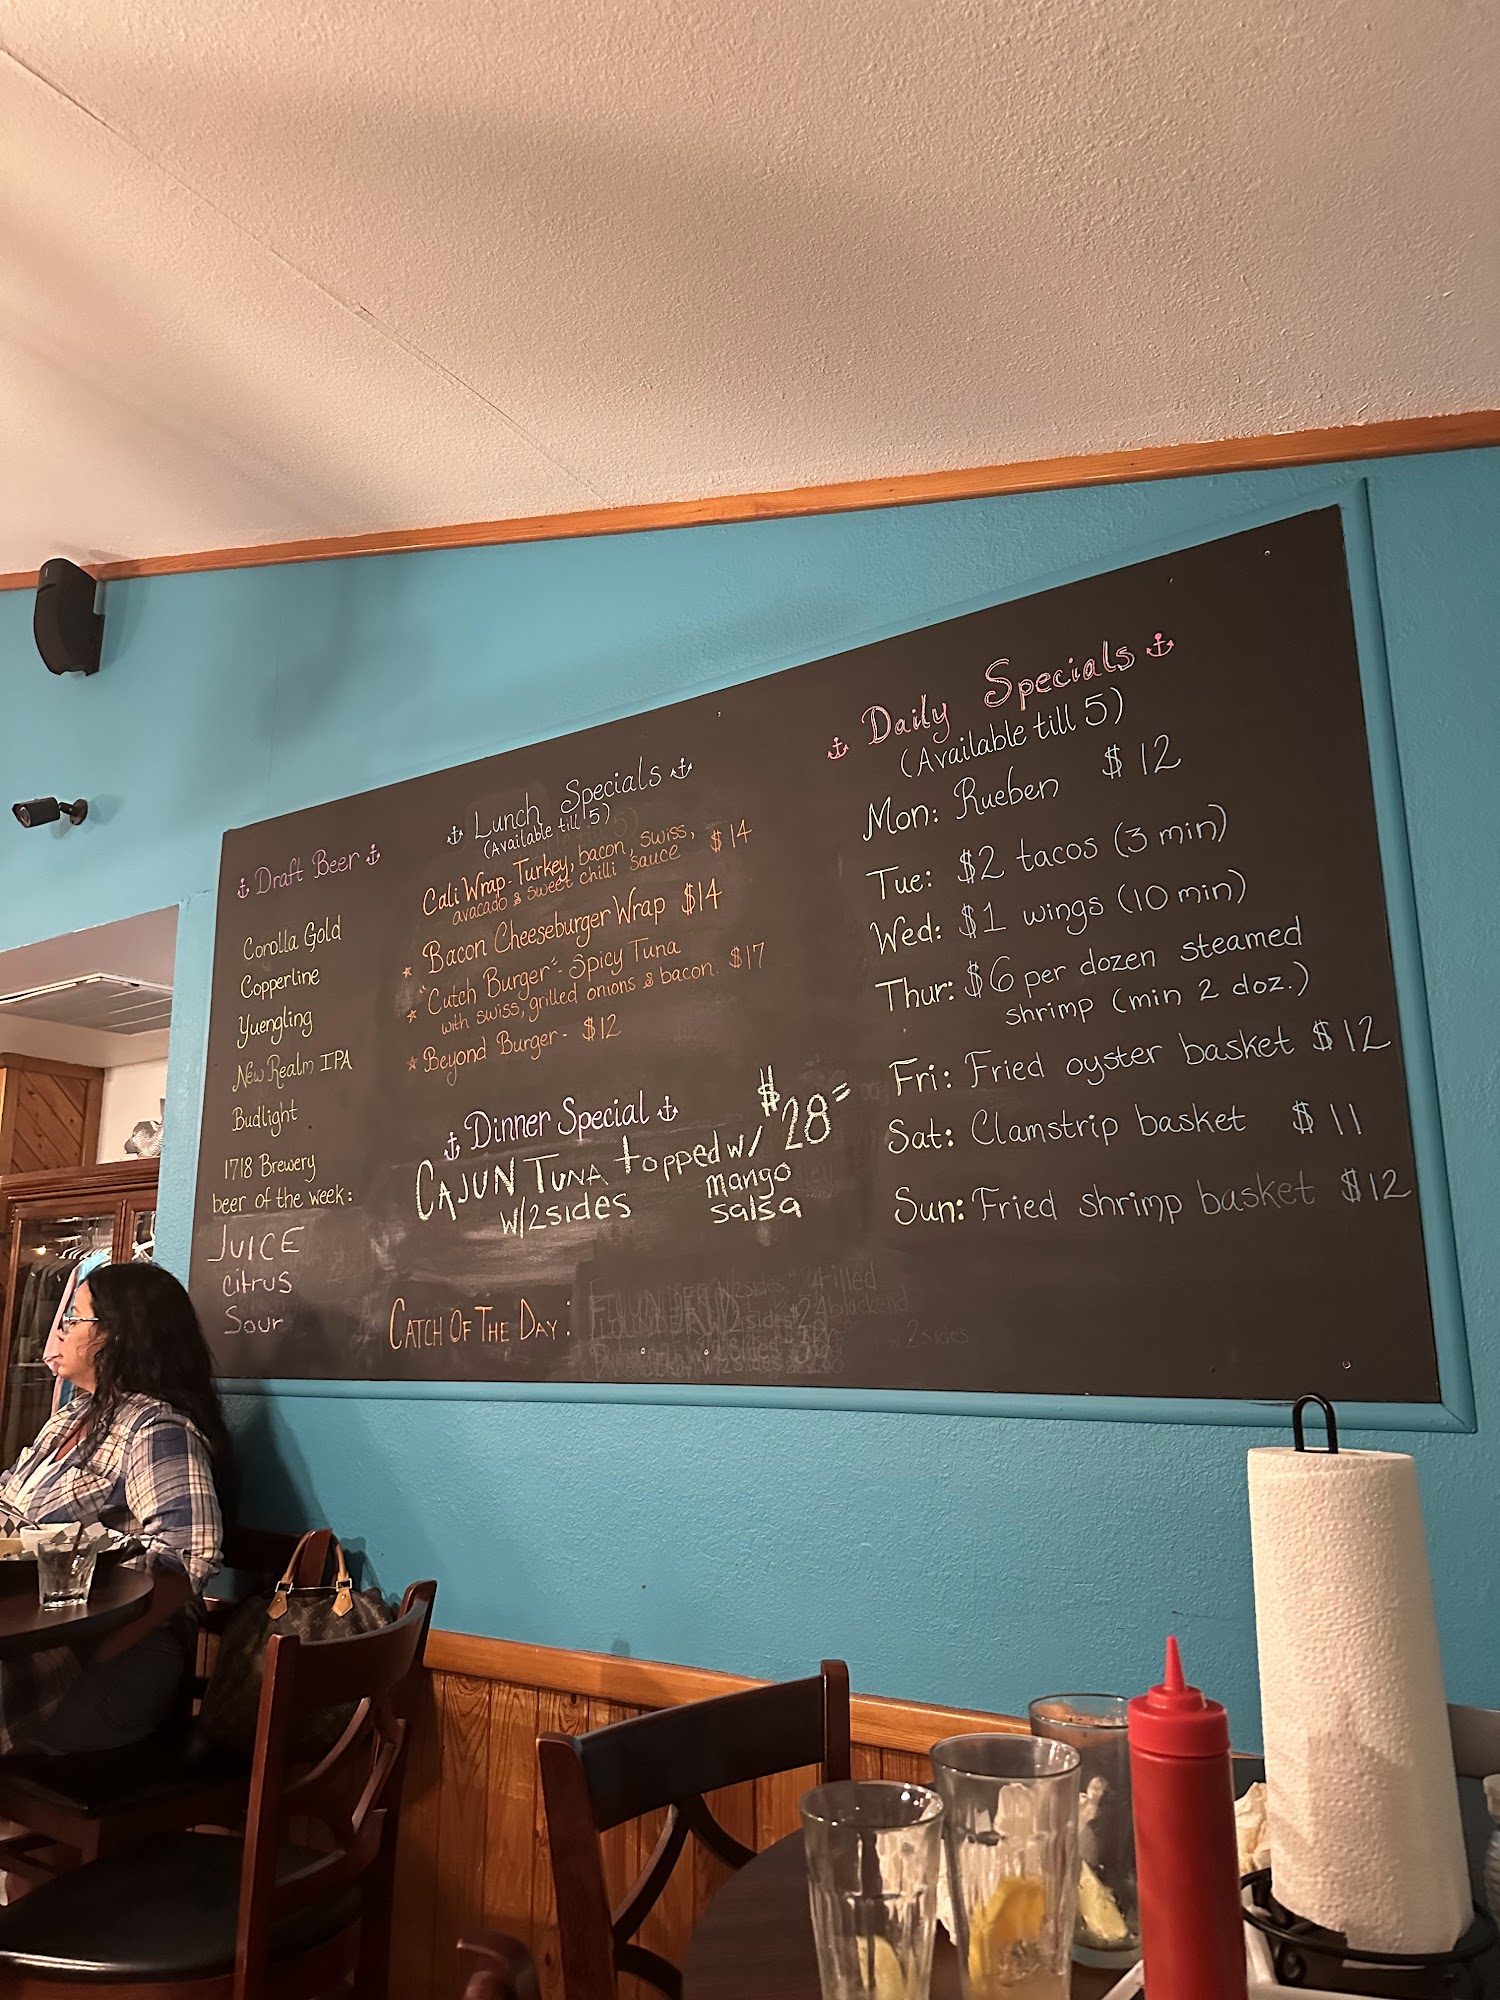 Draft Beer
Corolla Gold
Copperline
Yuengling
New Realm IPA
Budlight
1718 Brewery
beer of the week:
JUICE
citrus
Sour
Lunch Specials
(Available till 5)
Cali Wrap - Turkey, bacon, swiss,
avacado & sweet chilli sauce $14
Bacon Cheeseburger Wrap $14
"Cutch Burger" - Spicy Tuna
with swiss, grilled onions & bacon. $17
Beyond Burger - $12
Dinner Special
CAJUN TUNA topped w/ $28
w/2sides mango
salsa
CATCH OF THE DAY:
Daily Specials
(Available till 5)
Mon: Rueben $12
Tue: $2 tacos (3 min)
Wed: $1 wings (10 min)
Thur: $6 per dozen steamed
shrimp (min 2 doz.)
Fri: Fried oyster basket $12
Sat: Clamstrip basket $11
Sun: Fried shrimp basket $12